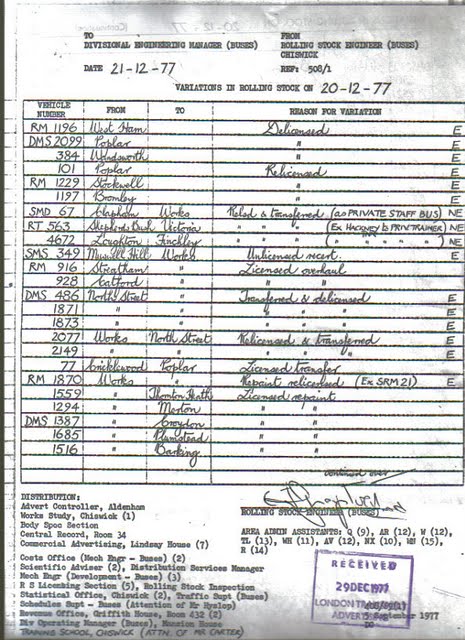 TO FROM
DIVISIONAL ENGINEERING MANAGER (BUSES) ROLLING STOCK ENGINEER (BUSES)
CHISWICK
DATE 21-12-77 REF: 508/1
VARIATIONS IN ROLLING STOCK ON 20-12-77
VEHICLE NUMBER FROM TO REASON FOR VARIATION
RM 1196 West Ham Delicensed E
DMS 2099 Poplar " E
384 Wandsworth " E
101 Poplar Relicensed E
RM 1229 Stockwell " E
1197 Bromley " E
SMD 67 Clapham Works Relsd & transferred (as PRIVATE STAFF BUS) NE
RT 563 Shepherds Bush Victoria " " " (Ex HACKNEY to PRIV. TRAINER) NE
4672 Loughton Finchley " " " ( " " " ) NE
SMS 349 Muswell Hill Works Unlicensed recert. E
RM 916 Streatham " Licensed overhaul
928 Catford " " "
DMS 486 North Street " Transferred & delicensed E
1871 " " " " " E
1873 " " " " " E
2077 Works North Street Relicensed & transferred E
2149 " " " " " E
77 Cricklewood Poplar Licensed transfer
RM 1870 Works " Repaint relicensed (Ex SRM 21) E
1559 " Thornton Heath Licensed repaint
1294 " Merton " "
DMS 1387 " Croydon " "
1685 " Plumstead " "
1516 " Barking " "
continued over
DISTRIBUTION:
ROLLING STOCK ENGINEER (BUSES)
Advert Controller, Aldenham
Works Study, Chiswick (1)
Body Spoc Section
Central Record, Room 34
Commercial Advertising, Lindsay House (7)
AREA ADMIN ASSISTANTS: Q (9), AR (12), W (12),
TL (13), WH (11), AV (12), NX (10), WN (15),
R (14)
Costs Office (Mech Engr - Buses) (2)
Scientific Adviser (2), Distribution Services Manager
Mech Engr (Development - Buses) (3)
R S Licensing Section (5), Rolling Stock Inspection
Statistical Office, Chiswick (2), Traffic Supt (Buses)
Schedules Supt - Buses (Attention of Mr Hyslop)
Revenue Office, Griffith House, Room 432 (2)
Div Operating Manager (Buses), Mansion House
TRAINING SCHOOL, CHISWICK (ATTN. OF MR CARTER)
RECEIVED
29 DEC 1977
LONDON TRANSPORT
September 1977